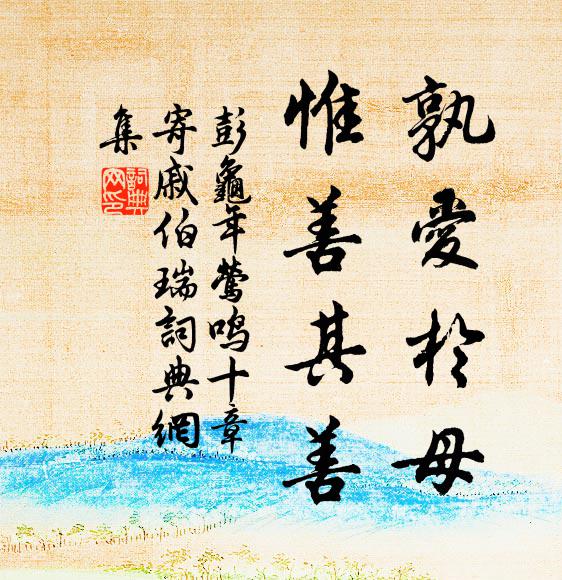 孰愛於母
惟善其善
彭龜年鶯鳴十章
寄戚伯瑞詞典網
集
詞典
网印